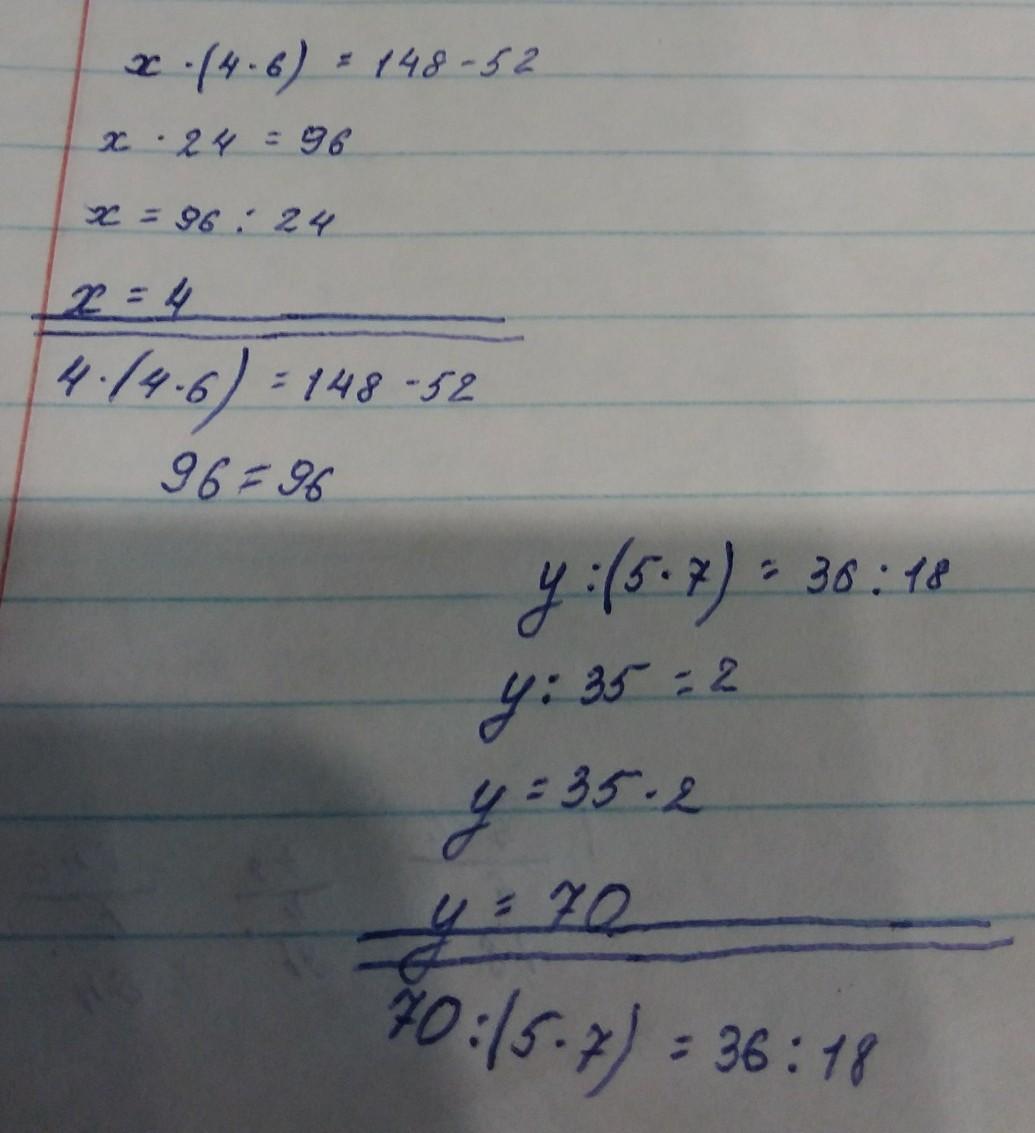 x · (4 · 6) = 148 - 52
x · 24 = 96
x = 96 : 24
x = 4
4 · (4 · 6) = 148 - 52
96 = 96
y : (5 · 7) = 36 : 18
y : 35 = 2
y = 35 · 2
y = 70
70 : (5 · 7) = 36 : 18